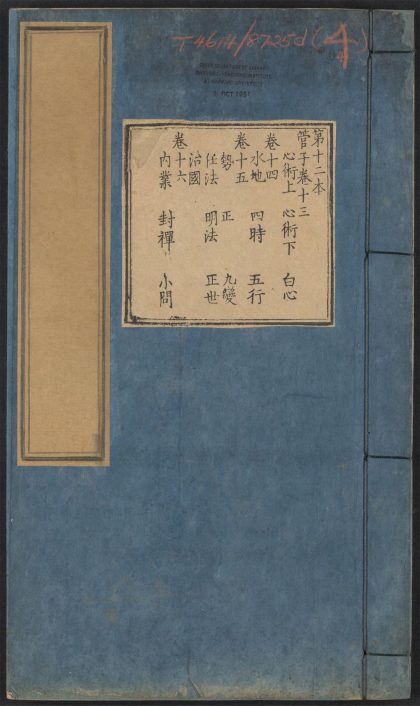 T4614/8725d (4)
5 OCT 1951
第十二本
管子卷十三
心術上 心術下 白心
卷十四
水地 四時 五行
卷十五
勢 正 九變
任法 明法 正世
治國
卷十六
內業 封禪 小問